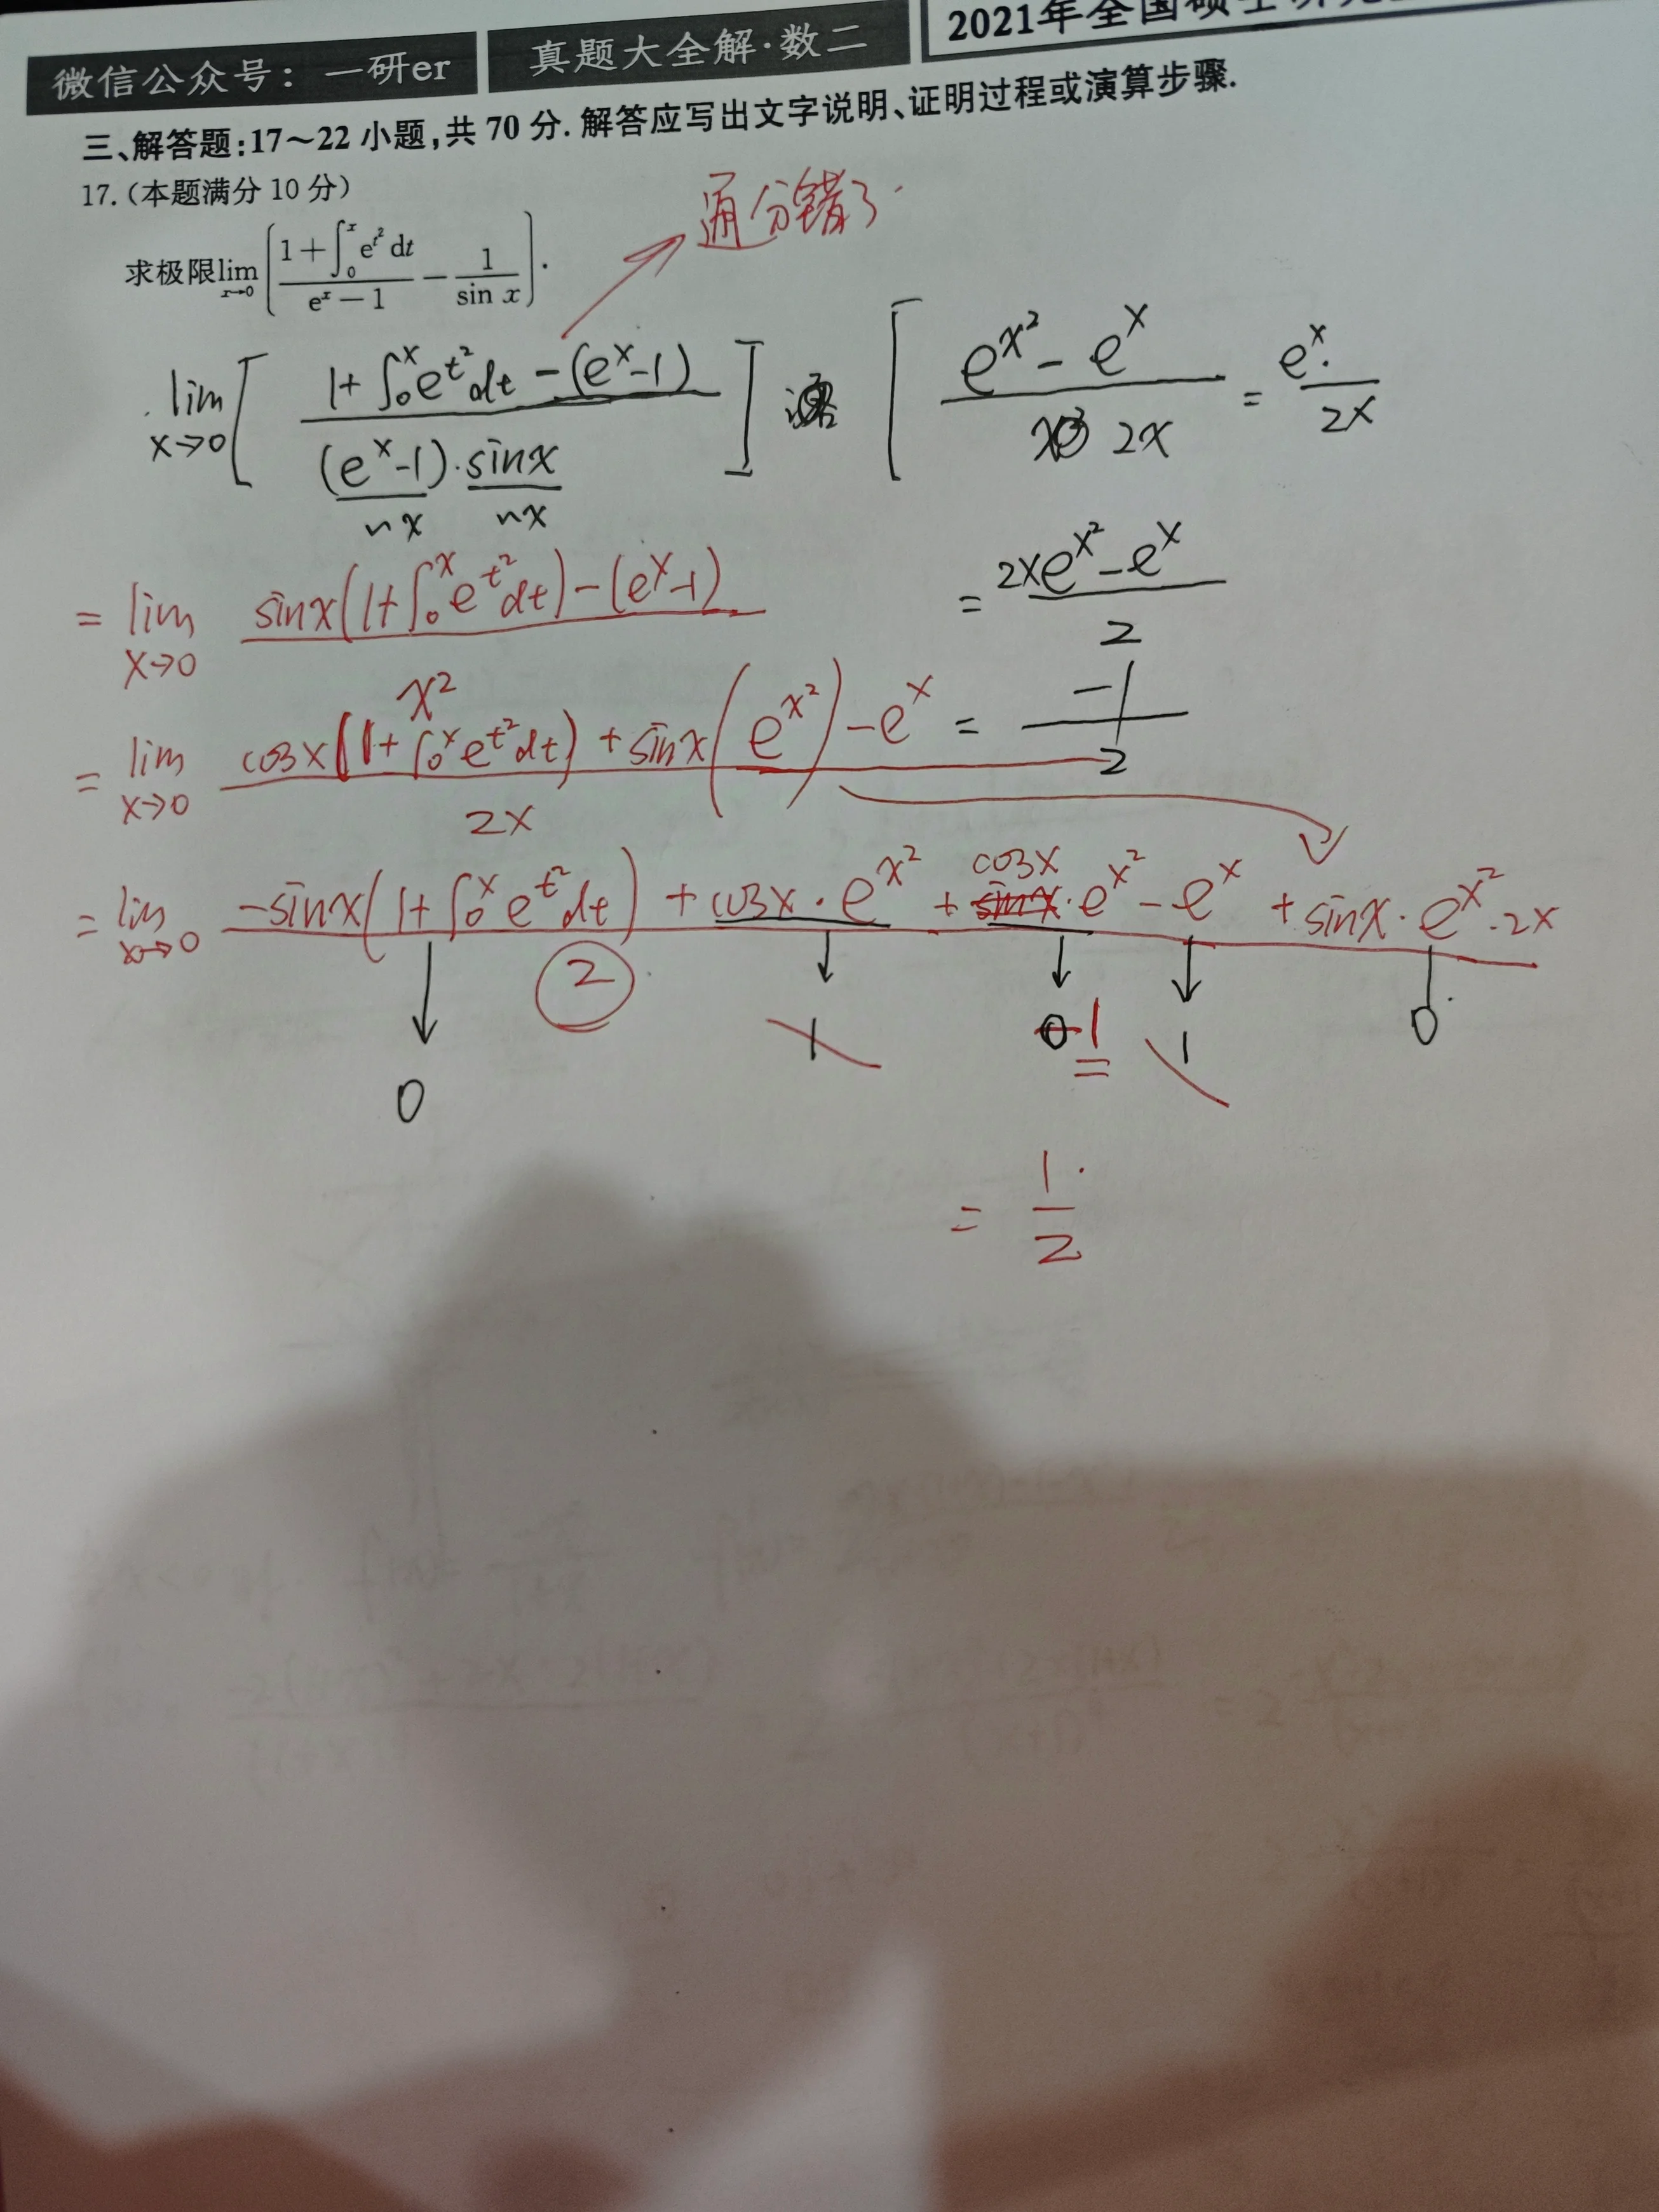 微信公众号：一研er 真题大全解·数二 2021年全国硕士研究
三、解答题:17～22 小题,共 70 分. 解答应写出文字说明、证明过程或演算步骤.
17.(本题满分 10 分)
通分错了.
求极限 lim_{x→0} [ (1+∫_0^x e^{t²} dt)/(e^x−1) − 1/sin x ].
lim_{x→0} [ (1+∫_0^x e^{t²}dt −(e^x−1)) / ((e^x−1)·sinx) ] [ (e^{x²}−e^x) / 2x = e^x· / 2x
~x ~x
= lim_{x→0} (sinx(1+∫_0^x e^{t²}dt)−(e^x−1)) / x²
= (2xe^{x²}−e^x) / 2
= lim_{x→0} (cosx(1+∫_0^x e^{t²}dt)+sinx(e^{x²})−e^x) / 2x
= −1/2
= lim_{x→0} (−sinx(1+∫_0^x e^{t²}dt)+cosx·e^{x²}+cosx·e^{x²}−e^x+sinx·e^{x²}·2x) / 2
0 1 1 1 0
= 1/2